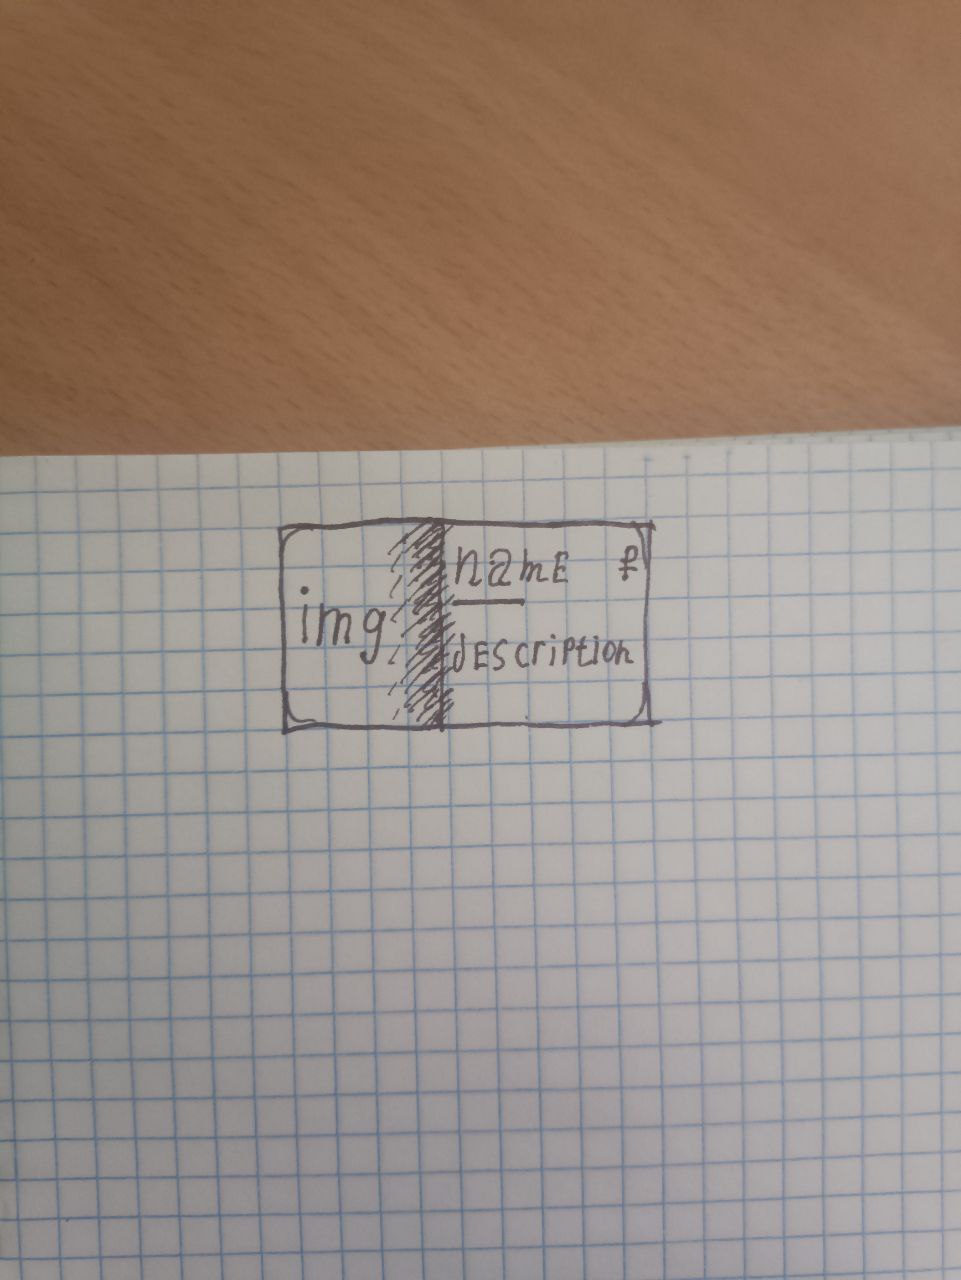 img
namE ₽
dEscription